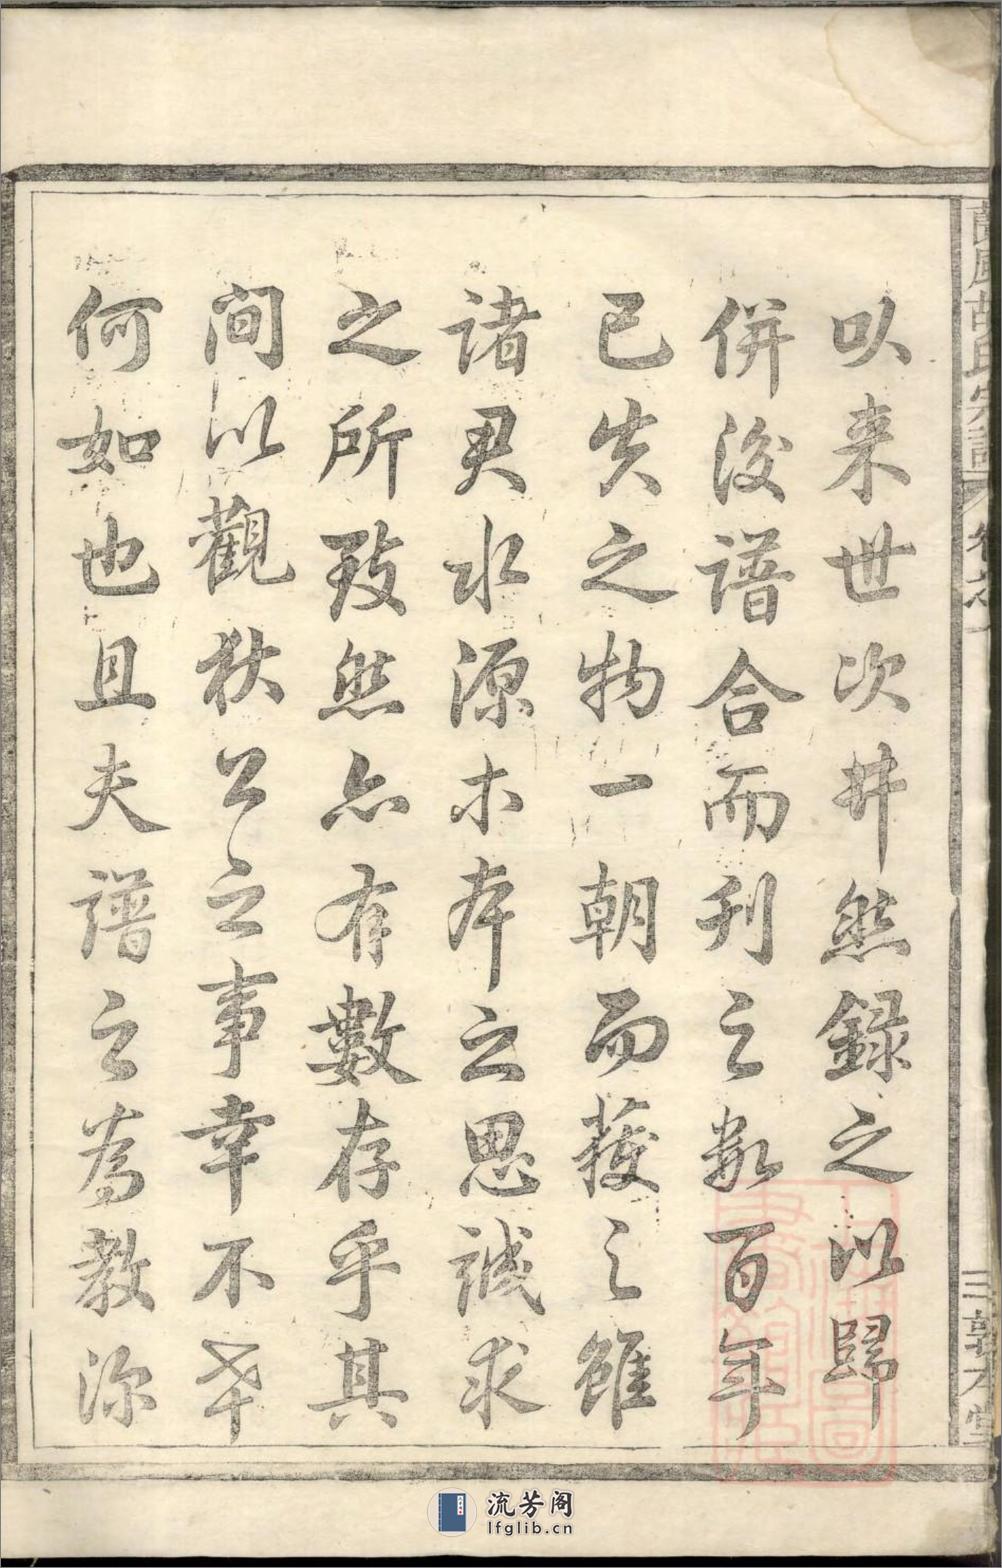 以来世次井然録之以歸
併後譜合而刋之數百年
已失之物一朝而獲之雖
諸君水源木本之思誠求
之所致然亦有數存乎其
间以觀狄公之事幸不幸
何如也且夫譜之為教深
胡氏宗譜 卷之一
三 敦本堂
流芳阁
lfglib.cn